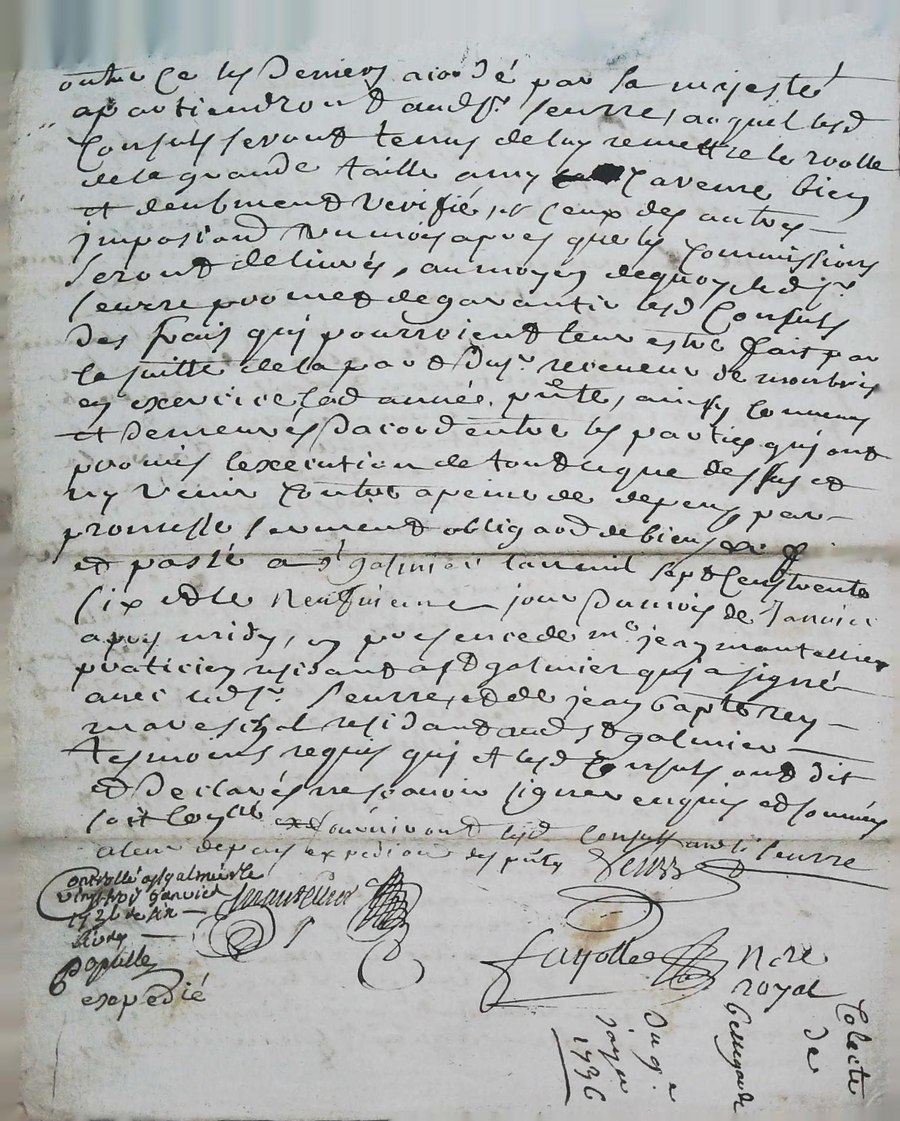 outre ce les deniers acordé par sa majesté
apartiendront aud sr. seurre, auquel lesd
Consuls seront tenus de luy remettre le roolle
de la grande taille a my Caresme bien
et deubment verifié, et ceux des autres
impositions un mois apres que les Commissions
seront delivrés, au moyen dequoy led sr.
seurre promet de garantir lesd Consuls
des frais qui pourroient leur estre fait par
la suitte de la part du sr. receveur de montbrison
en exercice lad année pñte, ainsy Convenu
et demeurés dacord entre les parties qui ont
promis lexecution de tout ce que dessus et
ny venir Contre a peine de depens par
promesse serment obligaon de biens
et passé a st galmier lan mil sept Cens trente
six et le neufvieme jour du mois de Janvier
apres midy, en presence de me. jean mantellier
praticien residant a st galmier qui a signé
avec led sr. seurre, et de jean bapte rey
mareschal residant aud st galmier
tesmoins requis qui et lesd Consuls ont dit
et declarés ne scavoir signer enquis et sommés
soit loysir fourniront lesd Consuls aud sr seurre
a leur depens expedion des pñtes Seurre
Controllé a st galmier le
vingt trois janvier
1736
expedié
mantellier
fayolle
Nore
royal
Colecte
de
Du 9e
janvier
1736